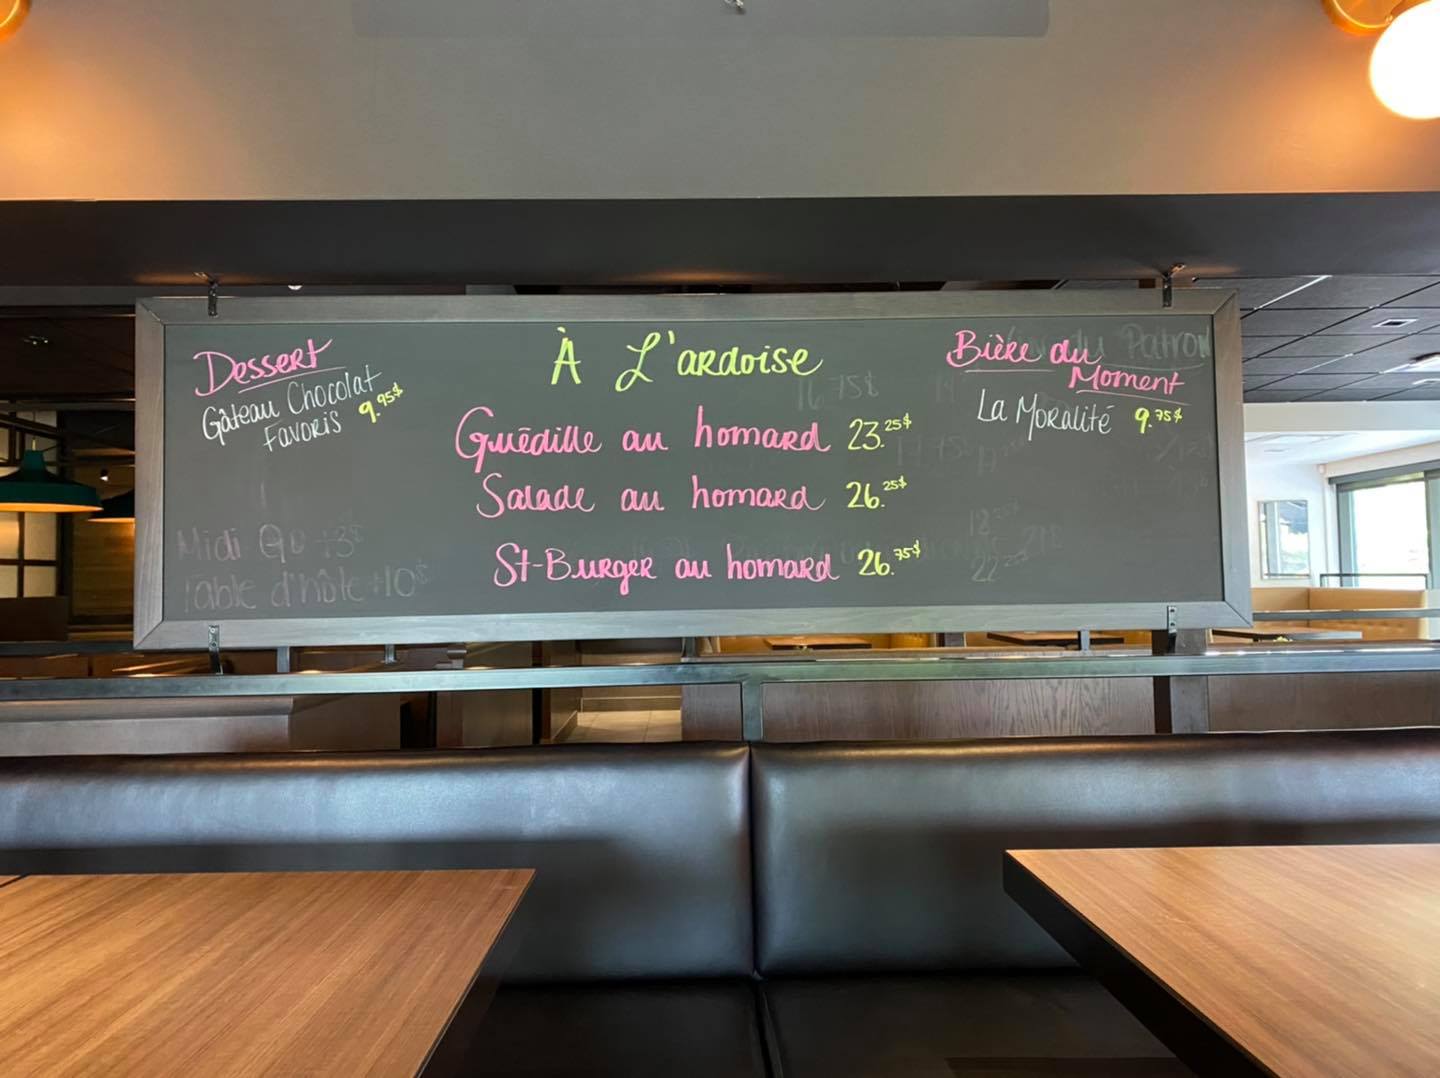 Dessert
Gâteau Chocolat
Favoris 9.95$
Midi Go +3$
Table d'hôte +10$
À L'ardoise
Guédille au homard 23.25$
Salade au homard 26.25$
St-Burger au homard 26.75$
16.75$
Bière du
Moment
Patron
La Moralité 9.75$